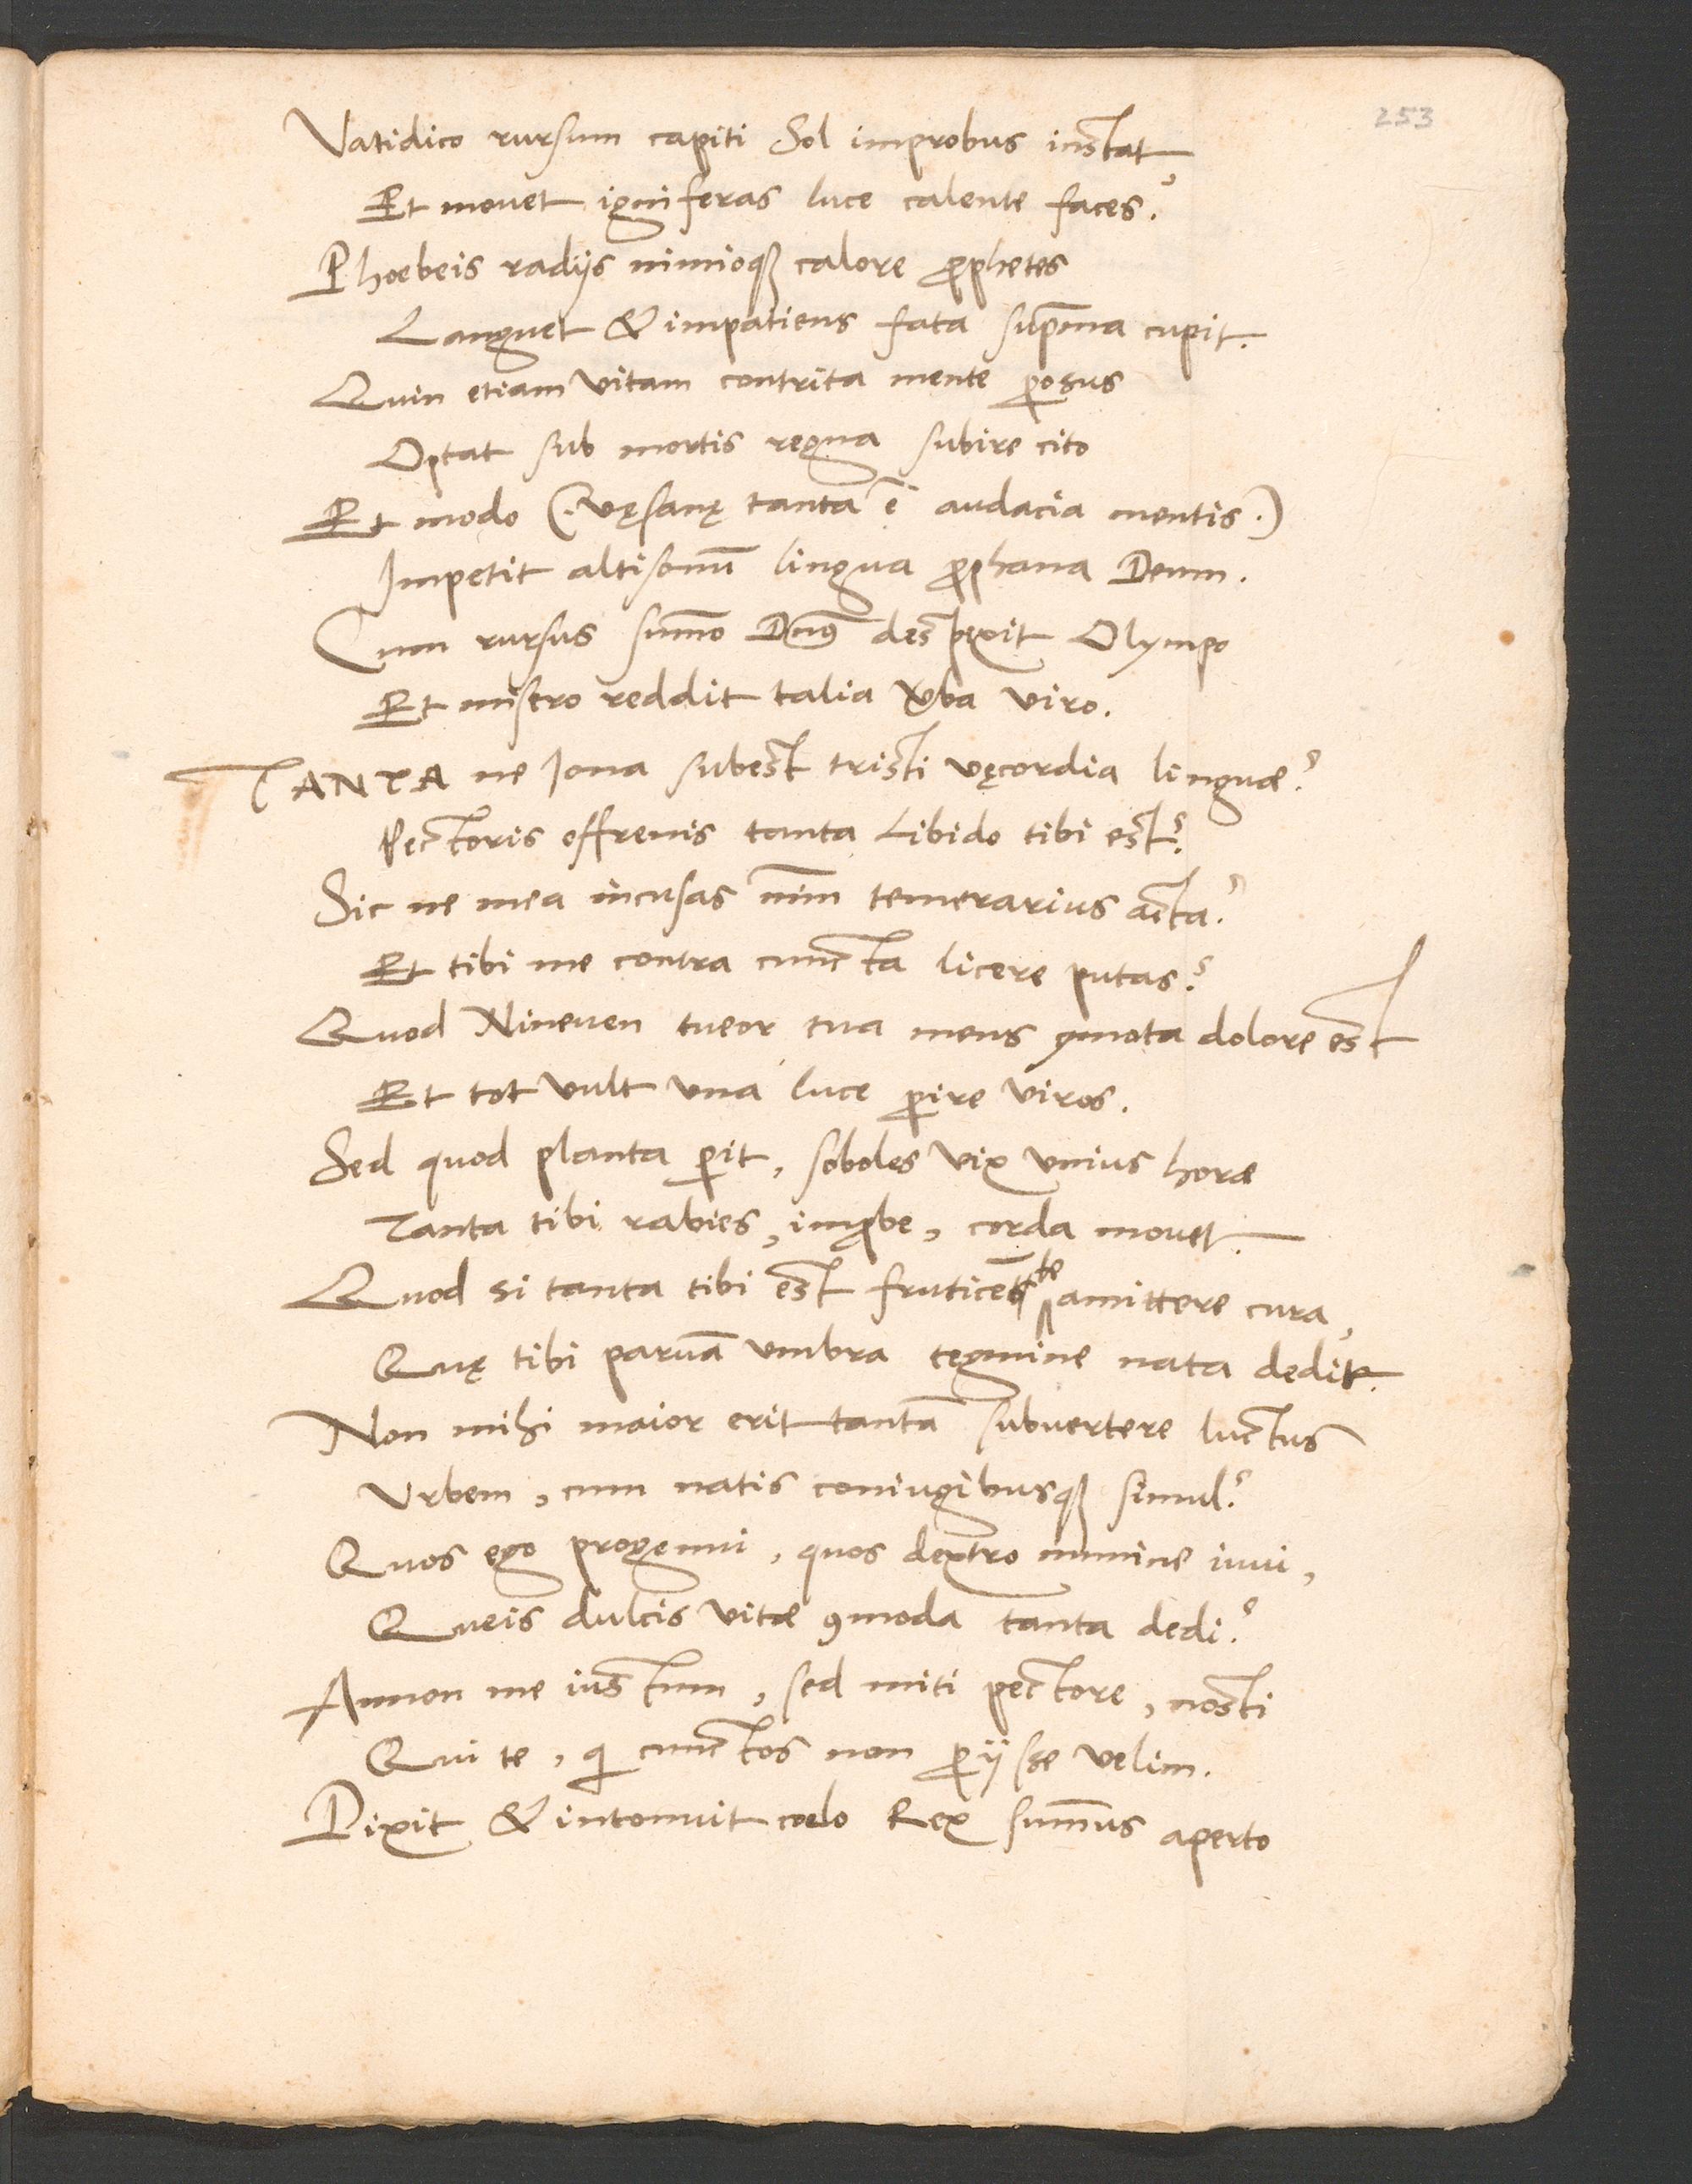 253
Vatidico rursum capiti Sol improbus instat
Et mouet igniferas luce calente faces?
Phoebeis radijs nimioqꝫ calore ꝓphetes
Languet & impatiens fata sup̄ma cupit.
Quin etiam vitam contrita mente ꝑosus
Optat sub mortis regna subire cito
Et modo (vęsanę tanta ē audacia mentis.)
Impetit altisonū lingua ꝓphana Deum.
Cum rursus sum̄o Dn̄s despexit Olympo
Et misero reddit talia v̄ba viro.
TANTA ne Iona subest tristi vęcordia linguæ?
Pectoris effrenis tanta Libido tibi est?
Sic ne mea incusas nim̄ temerarius acta?
Et tibi me contra cuncta licere putas?
Quod Nineuen tueor tua mens ꝯmota dolore est
Et tot vult vna luce ꝑire viros.
Sed quod planta ꝑit, soboles vix vnius horæ
Tanta tibi rabies, imꝓbe, corda mouet.
Quod si tanta tibi est fruticem̄ be amittere cura,
Quę tibi paruā vmbra tegmine nata dedit.
Non mihi maior erit tantā subuertere luctus
Vrbem, cum natis coniugibusqꝫ simul?
Quos ego progenui, quos dextro numine iuui,
Queis dulcis vitæ ꝯmoda tanta dedi?
Annon me iustum, sed miti pectore, nosti
Qui te, qi cunctos non ꝑijsse velim.
Dixit & intonuit coelo Rex sum̄us aperto